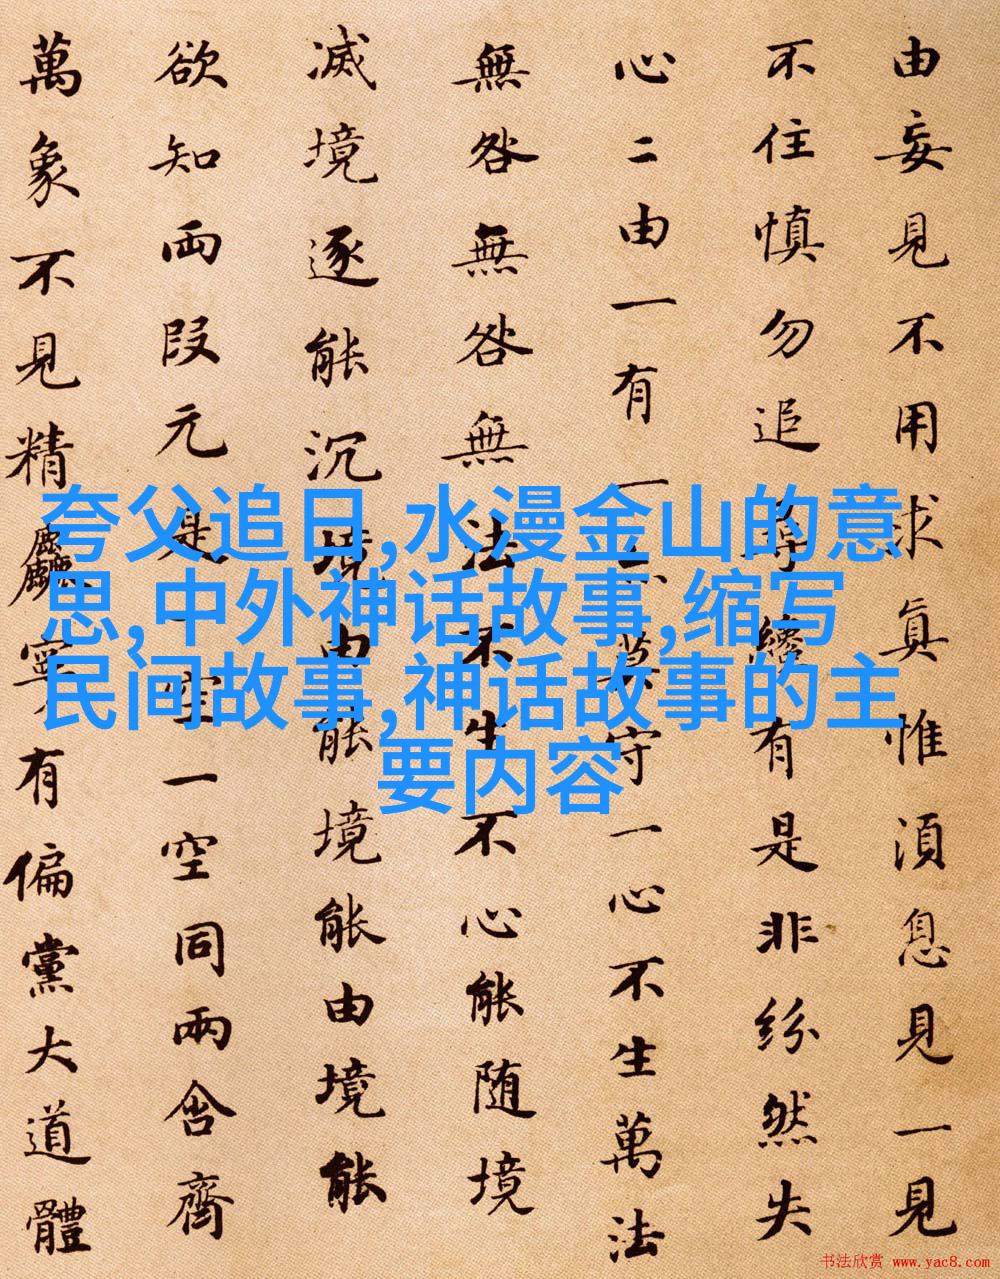 由妄見不用求眞惟湏息見一見
不住慎勿追尋纔有是非紛然失
心二由一有一亦莫守一心不生萬法
無咎無咎無法不生不心能随境
滅境逐能沉境由能境能由境能
欲知両段元是一空一空同兩含齊
萬象不見精麤寧有偏黨大道體
夸父追日,水漫金山的意
思,中外神话故事,缩写
民间故事,神话故事的主
要内容
书法欣赏 www.yac8.com